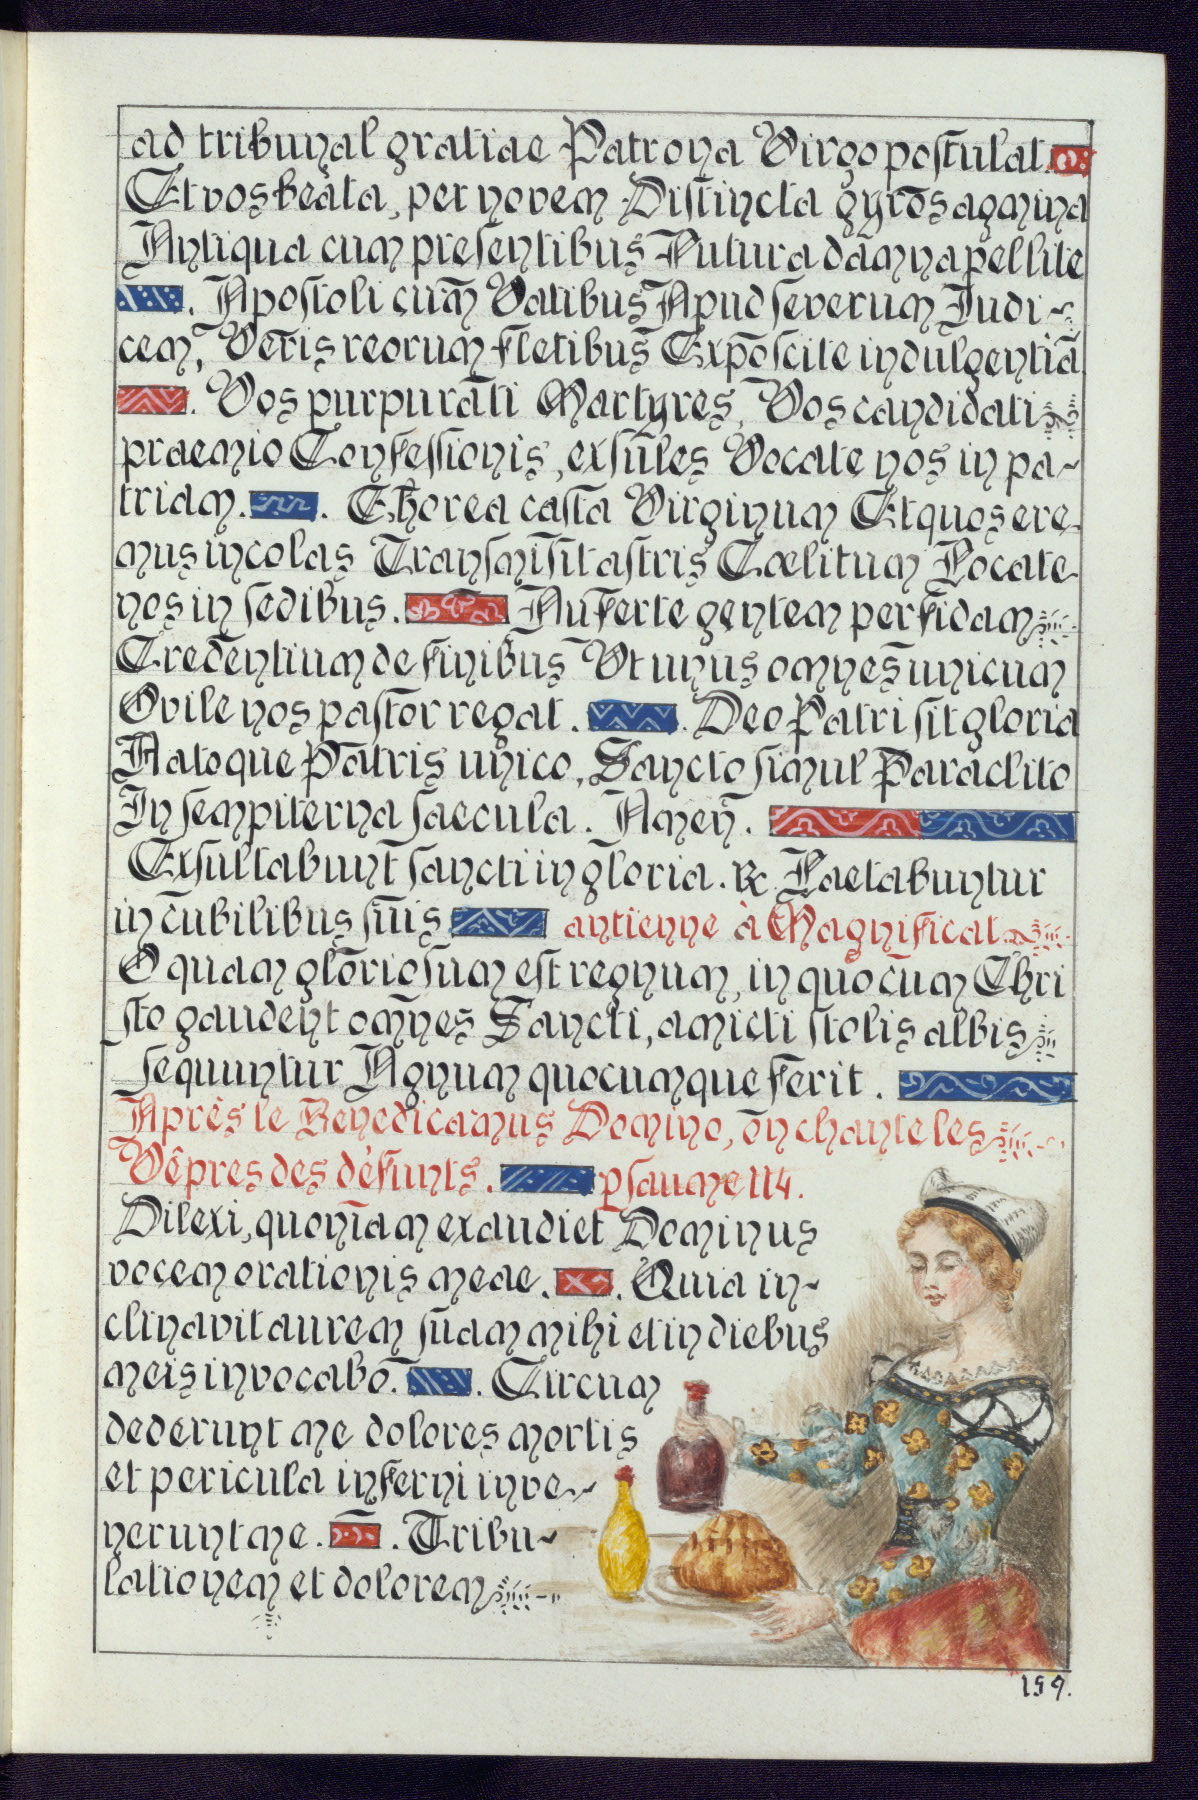 ad tribunal gratiae Patrona Virgo postulat.
Et vos beata, per novem Distincta gyros agmina
Antiqua cum presentibus Futura damna pellite
. Apostoli cum Vatibus Apud severum Judi-
cem, Veris reorum fletibus Exposcite indulgentiā
. Vos purpurati Martyres, Vos candidati
praemio Confessionis, exsules Vocate nos in pa-
triam. . Chorea casta Virginum Et quos ere-
mus incolas Transmisit astris Cœlitum Locate
nos in sedibus. Auferte gentem perfidam
Credentium de finibus Ut unus omnes unicum
Ovile nos pastor regat. . Deo Patri sit gloria
Natoque Patris unico, Sancto simul Paraclito
In sempiterna saecula. Amen.
Exsultabunt sancti in gloria. ℞. Laetabuntur
in cubilibus suis antienne à Magnificat
O quam gloriosum est regnum, in quo cum Chri
sto gaudent omnes Sancti, amicti stolis albis
sequuntur Agnum quocumque ferit.
Après le Benedicamus Domino, on chante les
Vêpres des défunts. psaume 114.
Dilexi, quoniam exaudiet Dominus
vocem orationis meae. . Quia in-
clinavit aurem suam mihi et in diebus
meis invocabo. . Circum
dederunt me dolores mortis
et pericula inferni inve-
nerunt me. . Tribu-
lationem et dolorem
159.